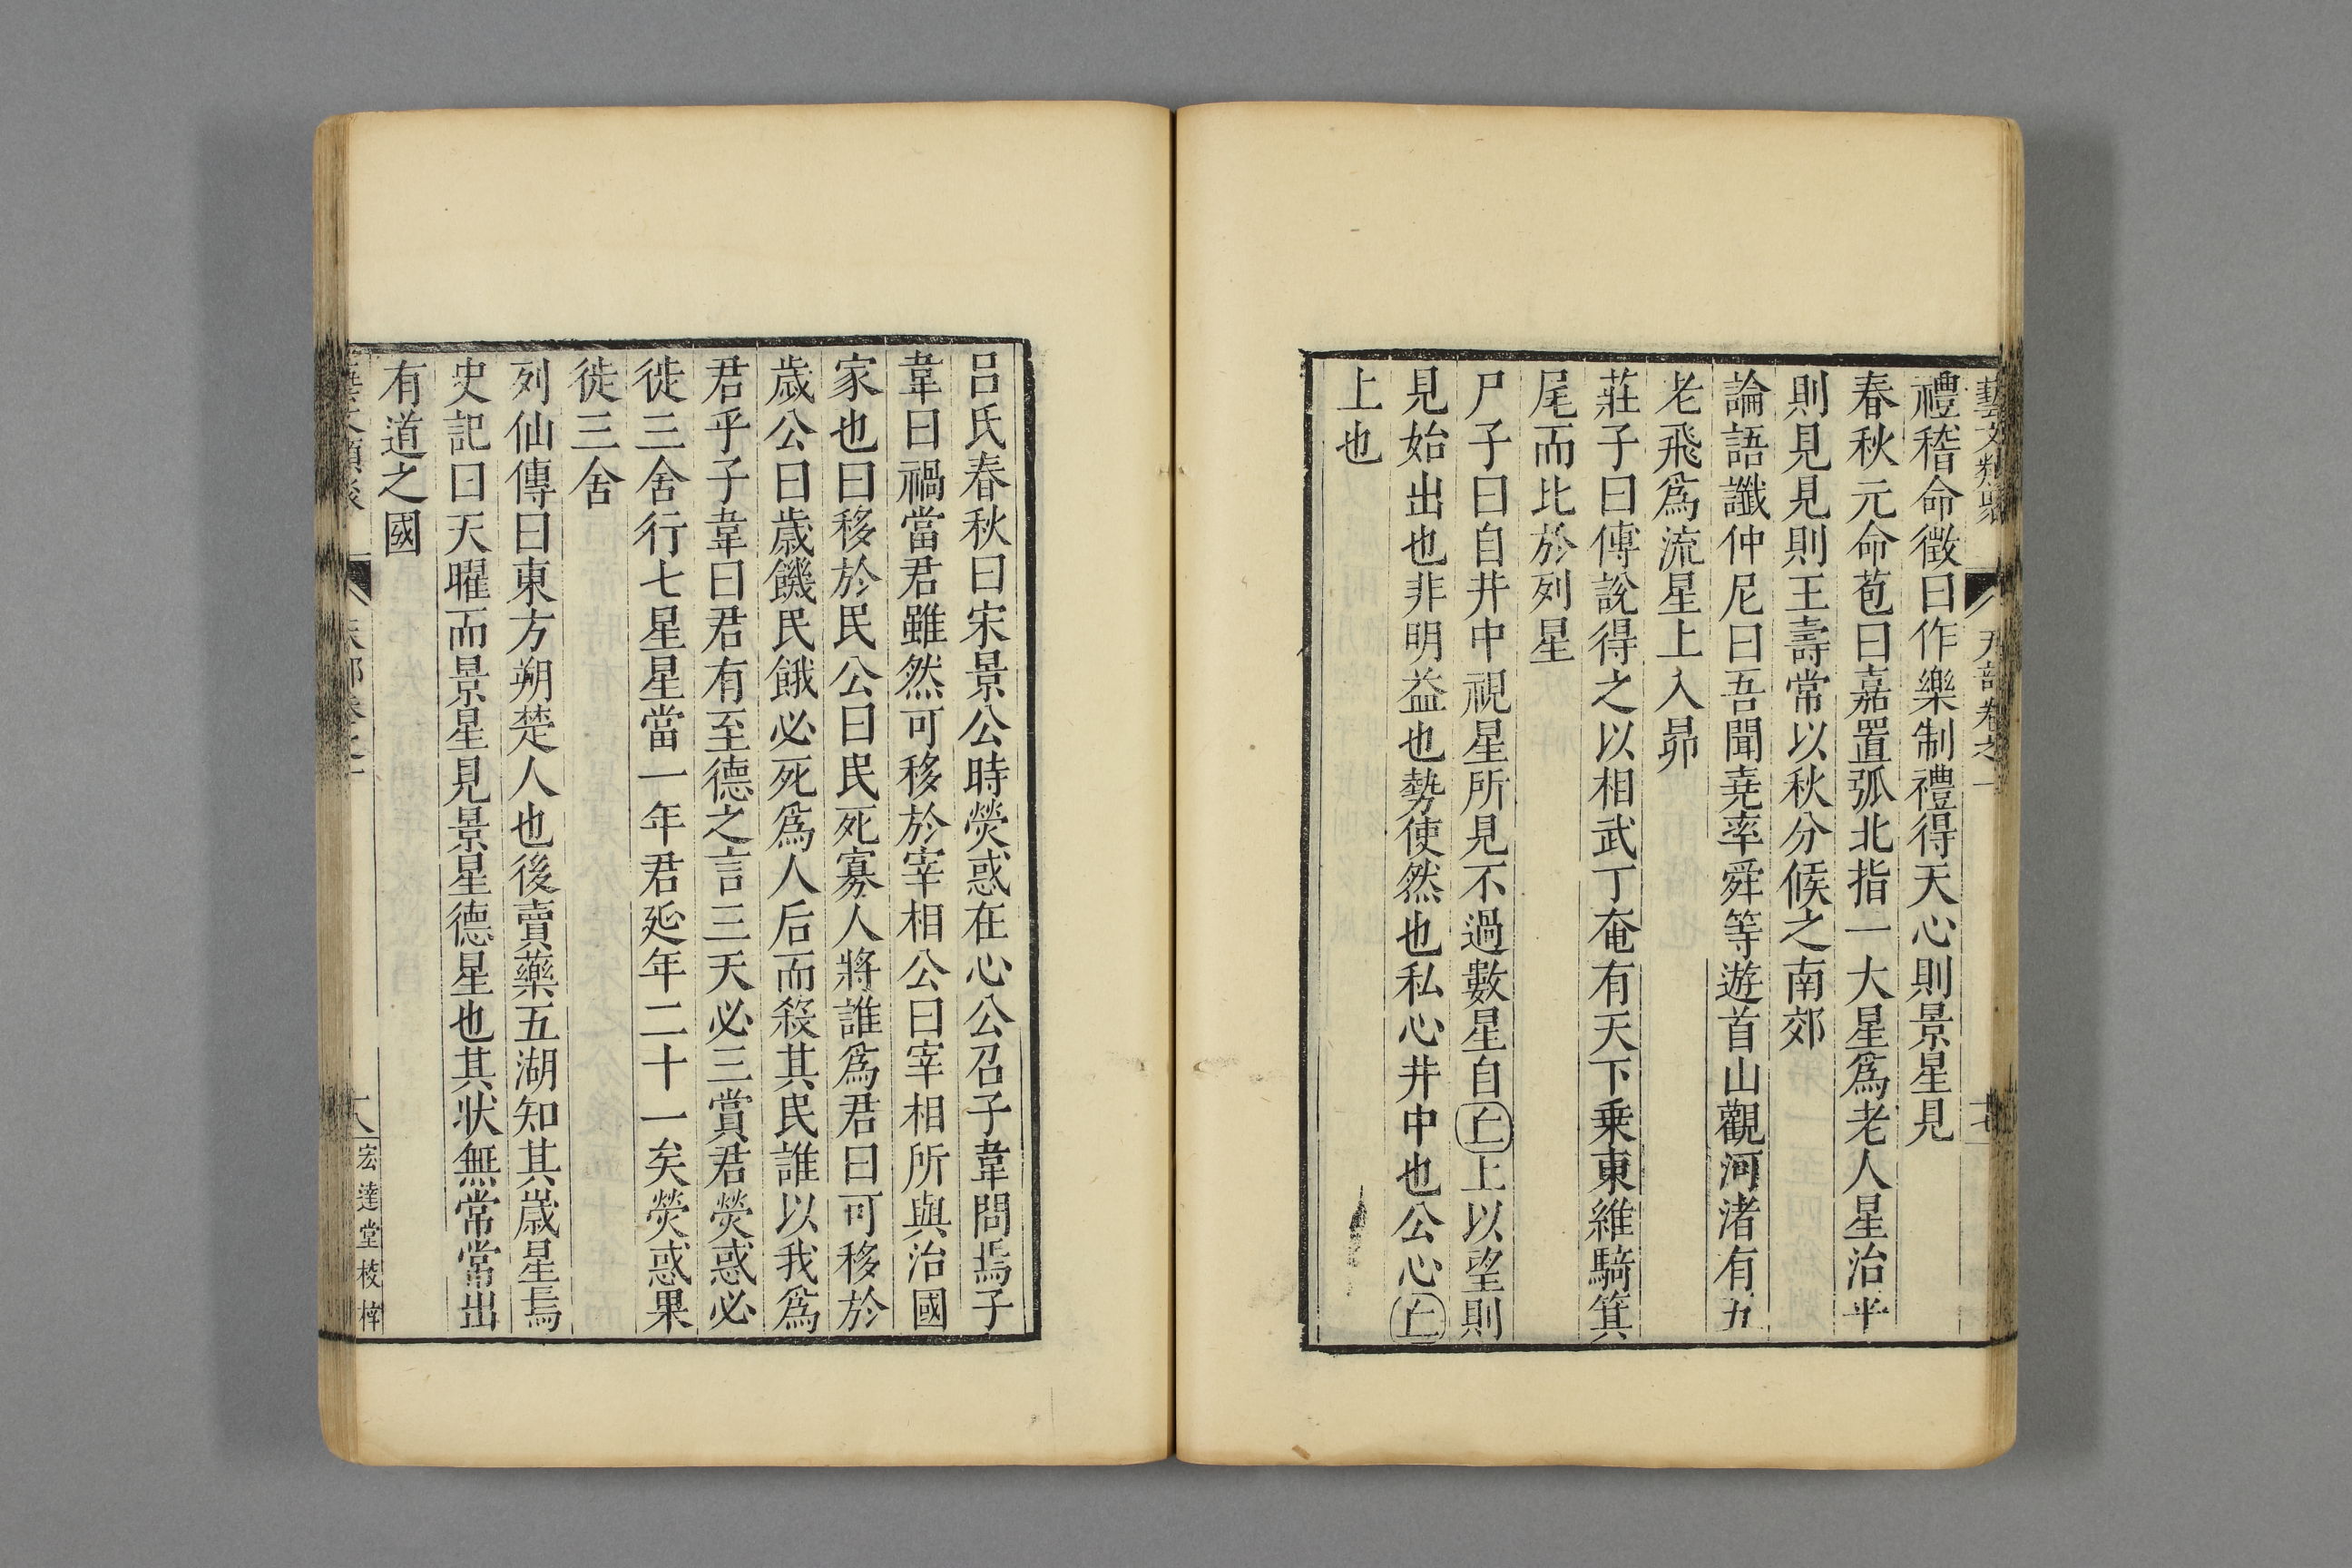 藝文類聚 天部卷之一 十七
禮稽命徵曰作樂制禮得天心則景星見
春秋元命苞曰嘉置弧北指一大星爲老人星治平
則見見則王壽常以秋分候之南郊
論語讖仲尼曰吾聞堯率舜等遊首山觀河渚有五
老飛爲流星上入昴
莊子曰傅說得之以相武丁奄有天下乗東維騎箕
尾而比於列星
尸子曰自井中視星所見不過數星自丘上以望則
見始出也非明益也勢使然也私心井中也公心丘
上也
呂氏春秋曰宋景公時熒惑在心公召子韋問焉子
韋曰禍當君雖然可移於宰相公曰宰相所與治國
家也曰移於民公曰民死寡人將誰爲君曰可移於
歲公曰歲饑民餓必死爲人后而殺其民誰以我爲
君乎子韋曰君有至德之言三天必三賞君熒惑必
徙三舍行七星星當一年君延年二十一矣熒惑果
徙三舍
列仙傳曰東方朔楚人也後賣藥五湖知其歲星焉
史記曰天曜而景星見景星德星也其狀無常常出
有道之國
藝文類聚 天部卷之一 十八 宏達堂校梓